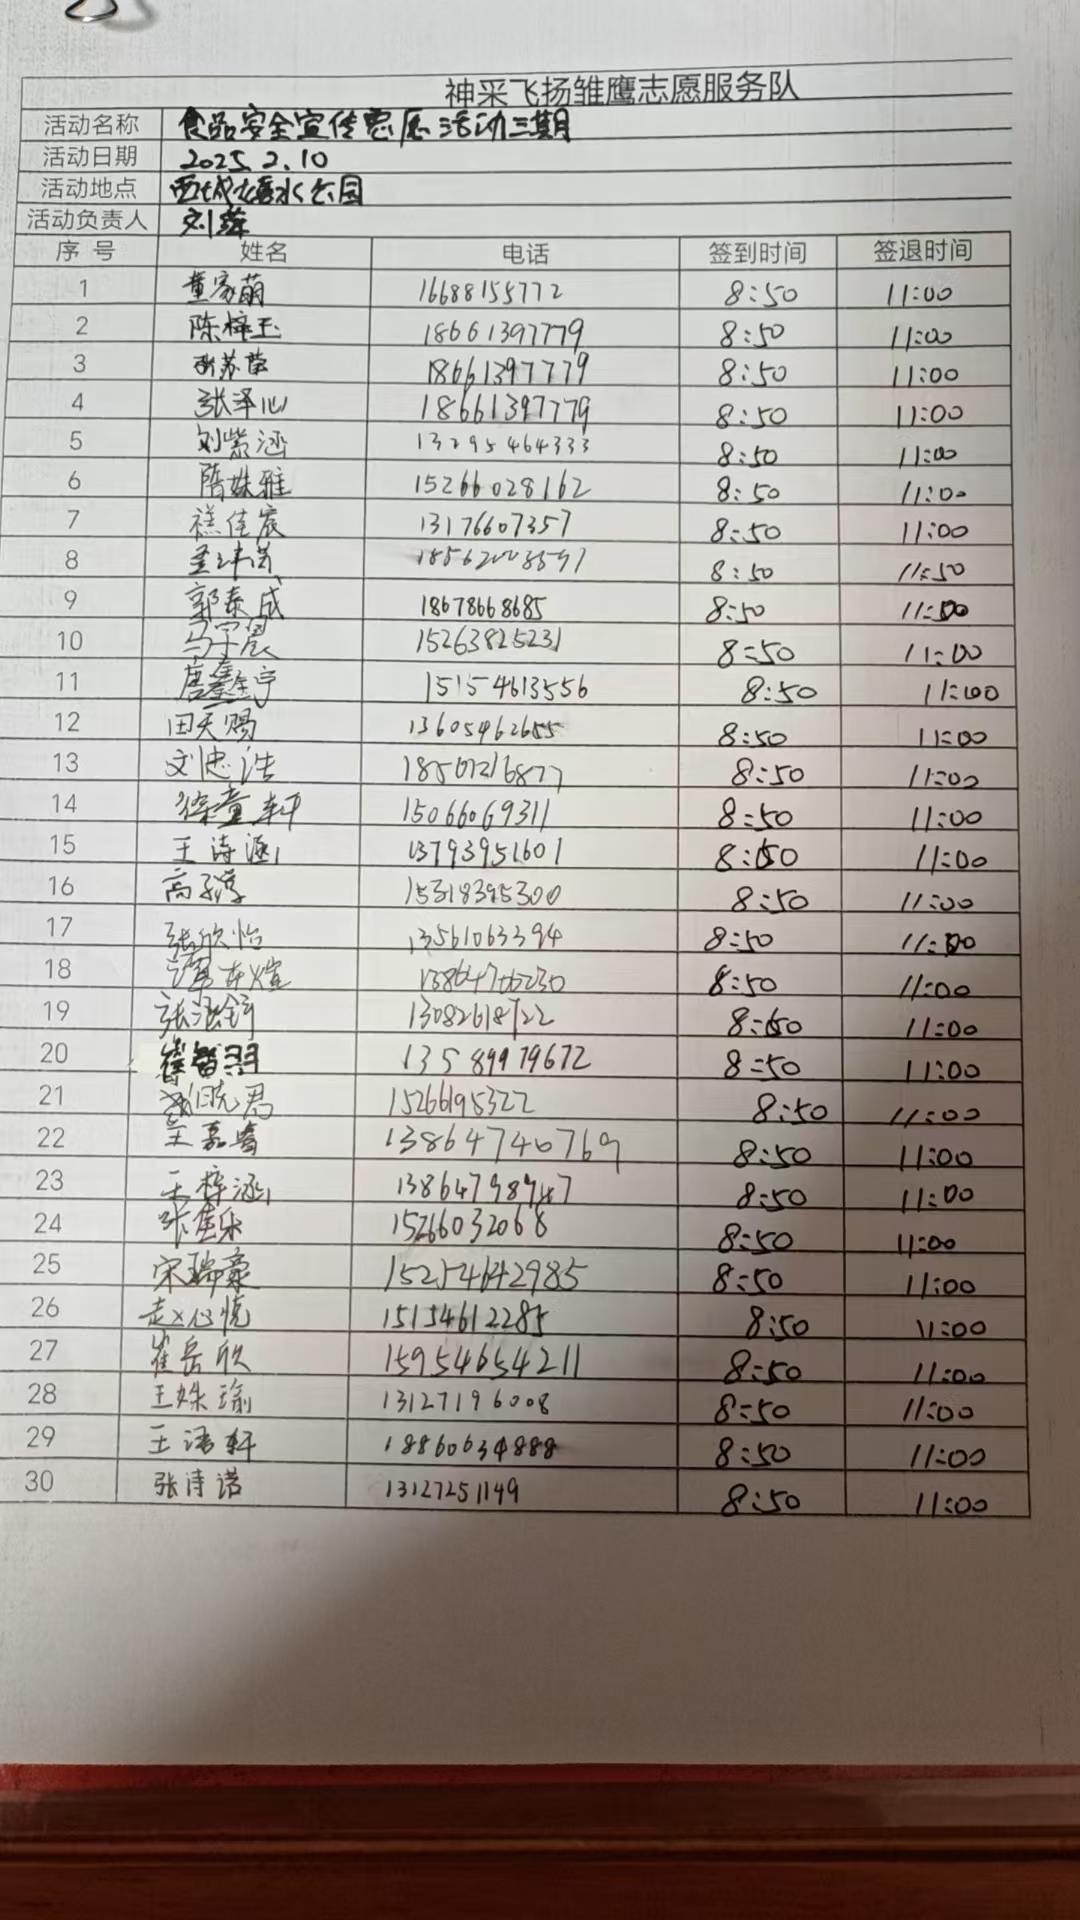 神采飞扬雏鹰志愿服务队
活动名称 食品安全宣传志愿活动三期
活动日期 2025.2.10
活动地点 西城 水公园
活动负责人 刘
序号 姓名 电话 签到时间 签退时间
1 董家萌 16688155772 8:50 11:00
2 陈梓玉 18661397779 8:50 11:00
3 苏荣 18661397779 8:50 11:00
4 张泽心 18661397779 8:50 11:00
5 刘紫涵 13295464333 8:50 11:00
6 隋姝雅 15266028162 8:50 11:00
7 禚佳宸 13176607357 8:50 11:00
8 8:50 11:50
9 郭泰成 18678668685 8:50 11:00
10 马宇晨 15263825231 8:50 11:00
11 唐鑫宇 15154613556 8:50 11:00
12 田天赐 13605462655 8:50 11:00
13 刘忠浩 18501216877 8:50 11:00
14 徐童轩 15066069311 8:50 11:00
15 王诗涵 13793951601 8:50 11:00
16 高子淳 15318395300 8:50 11:00
17 张欣怡 13561063394 8:50 11:00
18 8:50 11:00
19 张涵 13082618722 8:50 11:00
20 崔智羽 13589979672 8:50 11:00
21 晓君 1526695322 8:50 11:00
22 王嘉 13864740769 8:50 11:00
23 王梓涵 8:50 11:00
24 张佳乐 15266032068 8:50 11:00
25 宋瑞豪 15254642985 8:50 11:00
26 赵心悦 15154612285 8:50 11:00
27 崔岳欣 15954654211 8:50 11:00
28 王姝瑜 13127196008 8:50 11:00
29 王浩轩 18860634888 8:50 11:00
30 张诗诺 13127251149 8:50 11:00